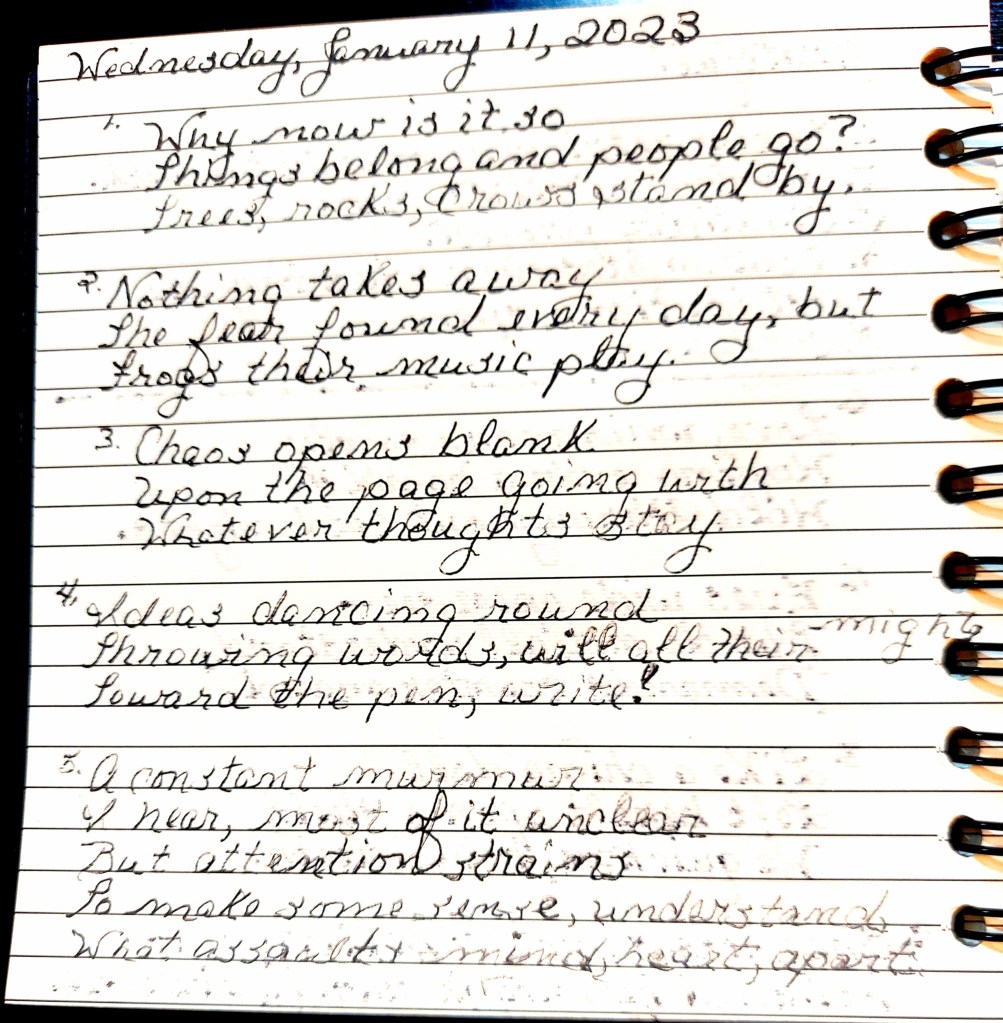 Wednesday, January 11, 2023
1. Why now is it so
Things belong and people go?
Trees, rocks, Crows stand by.
2. Nothing takes away
The fear found every day, but
Frogs their music play.
3. Chaos opens blank
Upon the page going with
Whatever thoughts stay.
4. Ideas dancing round
Throwing words, will all their might
Toward the pen, write!
5. A constant murmur
I hear, most of it unclear
But attention strains
To make some sense, understand
What assaults mind, heart, apart.